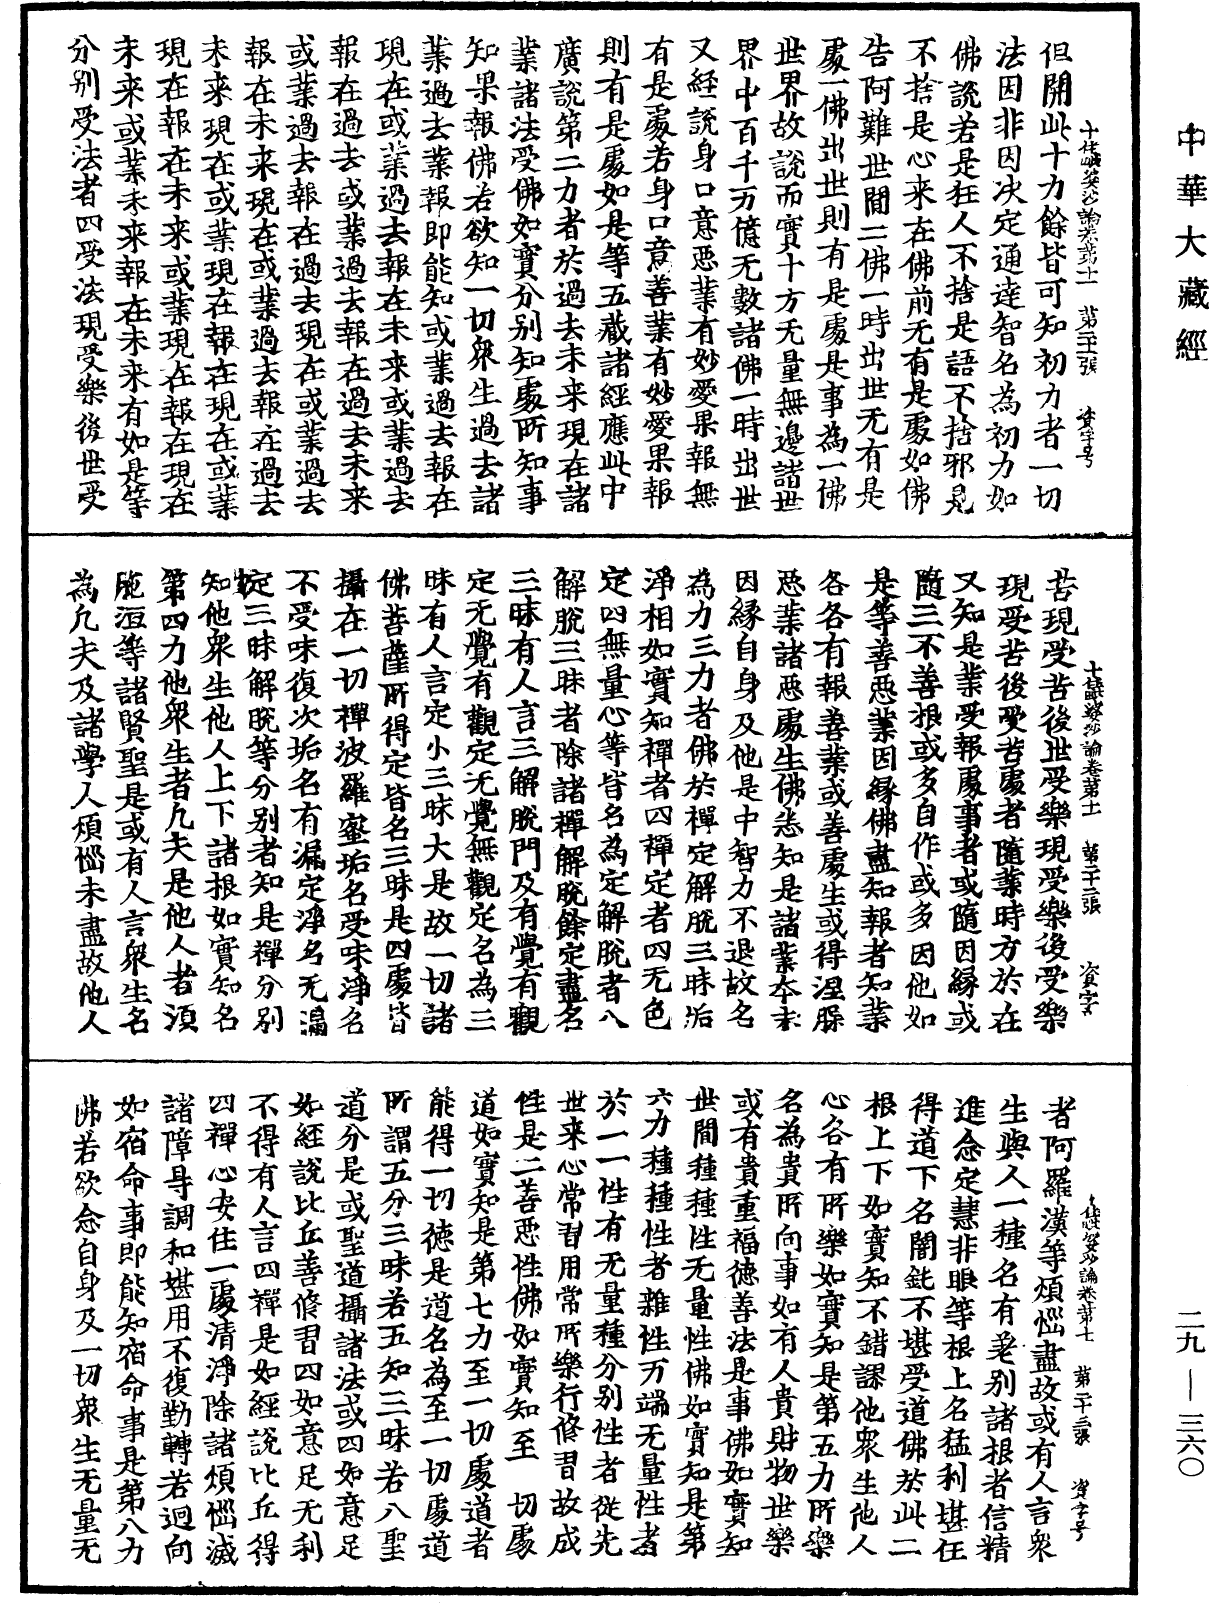 中華大藏經
十住毗婆沙論卷第十一　第二十二張　資字号
但開此十力餘皆可知初力者一切
法因非因決定通達智名為初力如
佛說若是狂人不捨是語不捨邪見
不捨是心来在佛前无有是處如佛
告阿難世間二佛一時出世无有是
處一佛出世則有是處是事為一佛
世界故說而實十方无量無邊諸世
界中百千万億无數諸佛一時出世
又經說身口意惡業有妙愛果報無
有是處若身口意善業有妙愛果報
則有是處如是等五藏諸經應此中
廣說第二力者於過去未来現在諸
業諸法受佛如實分別知處所知事
知果報佛若欲知一切衆生過去諸
業過去業報即能知或業過去報在
現在或業過去報在未来或業過去
報在過去或業過去報在過去未来
或業過去報在過去現在或業過去
報在未来現在或業過去報在過去
未来現在或業現在報在現在或業
現在報在未来或業現在報在現在
未来或業未来報在未来有如是等
分別受法者四受法現受樂後世受
十住毗婆沙論卷第十一　第二十三張　資字
苦現受苦後世受樂現受樂後受樂
現受苦後受苦處者隨業時方於在
又知是業受報處事者或隨因緣或
隨三不善根或多自作或多因他如
是等善惡業因緣佛盡知報者知業
各各有報善業或善處生或得涅槃
惡業諸惡處生佛悉知是諸業本末
因緣自身及他是中智力不退故名
為力三力者佛於禪定解脫三昧垢
淨相如實知禪者四禪定者四无色
定四無量心等皆名為定解脫者八
解脫三昧者除諸禪解脫餘定盡名
三昧有人言三解脫門及有覺有觀
定无覺有觀定无覺無觀定名為三
昧有人言定小三昧大是故一切諸
佛菩薩所得定皆名三昧是四處皆
攝在一切禪波羅蜜垢名受味淨名
不受味復次垢名有漏定淨名无漏
定三昧解脫等分別者知是禪分別
知他衆生他人上下諸根如實知名
第四力他衆生者凡夫是他人者須
陁洹等諸賢聖是或有人言衆生名
為凡夫及諸學人煩惱未盡故他人
第二十三張　資字号
者阿羅漢等煩惱盡故或有人言衆
生與人一種名有差別諸根者信精
進念定慧非眼等根上名猛利堪任
得道下名闇鈍不堪受道佛於此二
根上下如實知不錯謬他衆生他人
心各有所樂如實知是第五力所樂
名為貴所向事如有人貴財物世樂
或有貴重福德善法是事佛如實知
世間種種性无量性佛如實知是第
六力種種性者雜性万端无量性者
於一一性有无量種分別性者從先
世来心常習用常所樂行修習故成
性是二善惡性佛如實知至一切處
道如實知是第七力至一切處道者
能得一切德是道名為至一切處道
所謂五分三昧若五知三昧若八聖
道分是或聖道攝諸法或四如意足
如經說比丘善修習四如意足无利
不得有人言四禪是如經說比丘得
四禪心安住一處清淨除諸煩惱滅
諸障㝵調和堪用不復動轉若迴向
如宿命事即能知宿命事是第八力
佛若欲念自身及一切衆生无量无
二九—三六〇